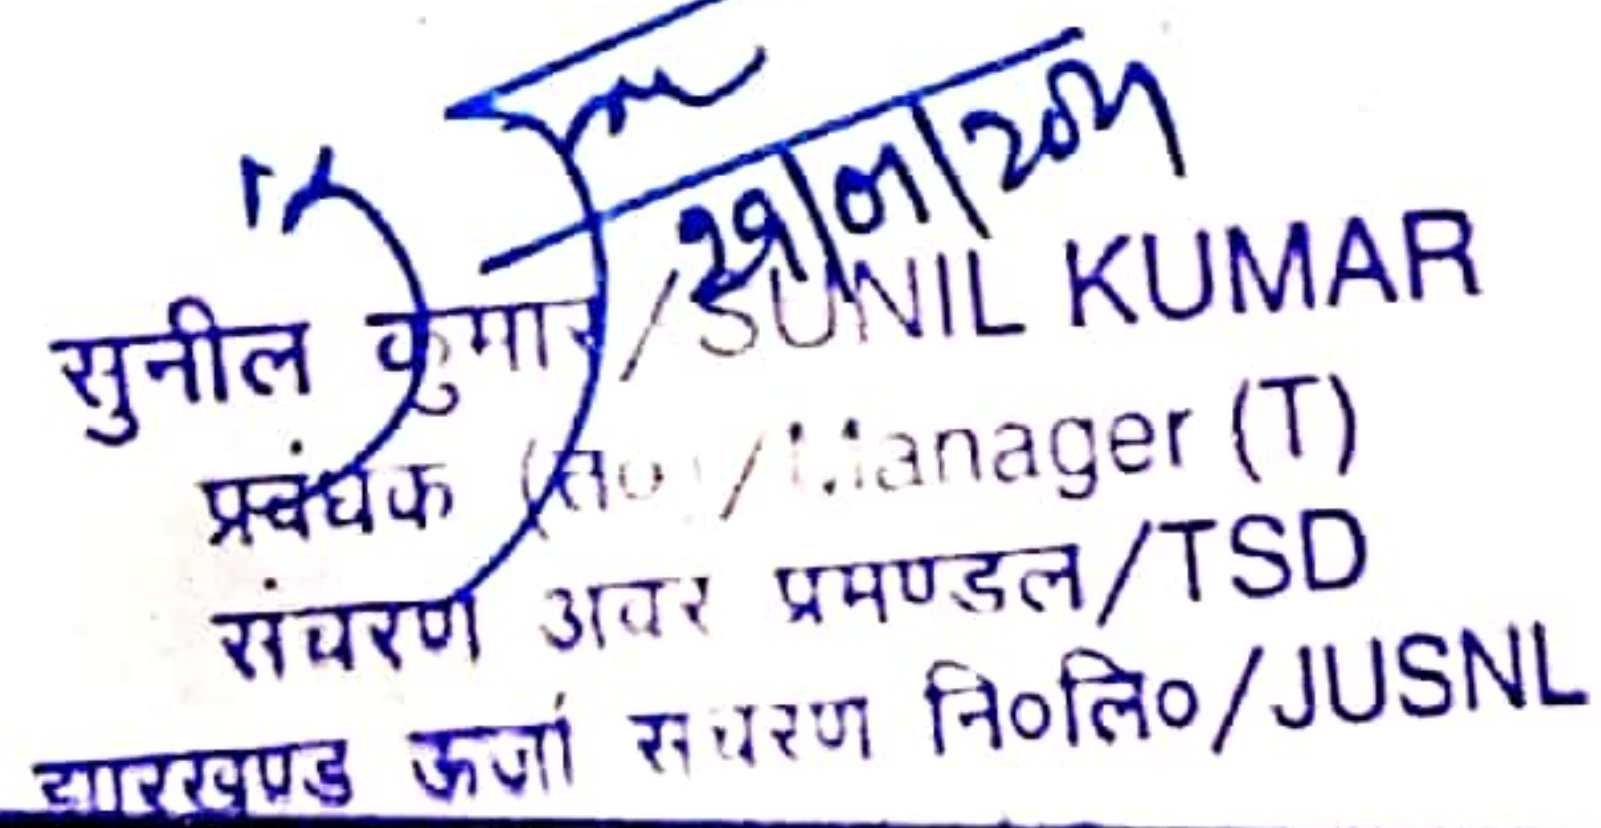 29/01/2021
सुनील कुमार/SUNIL KUMAR
प्रवंधक (त०)/Manager (T)
संचरण अवर प्रमण्डल/TSD
झारखण्ड ऊर्जा संचरण नि०लि०/JUSNL